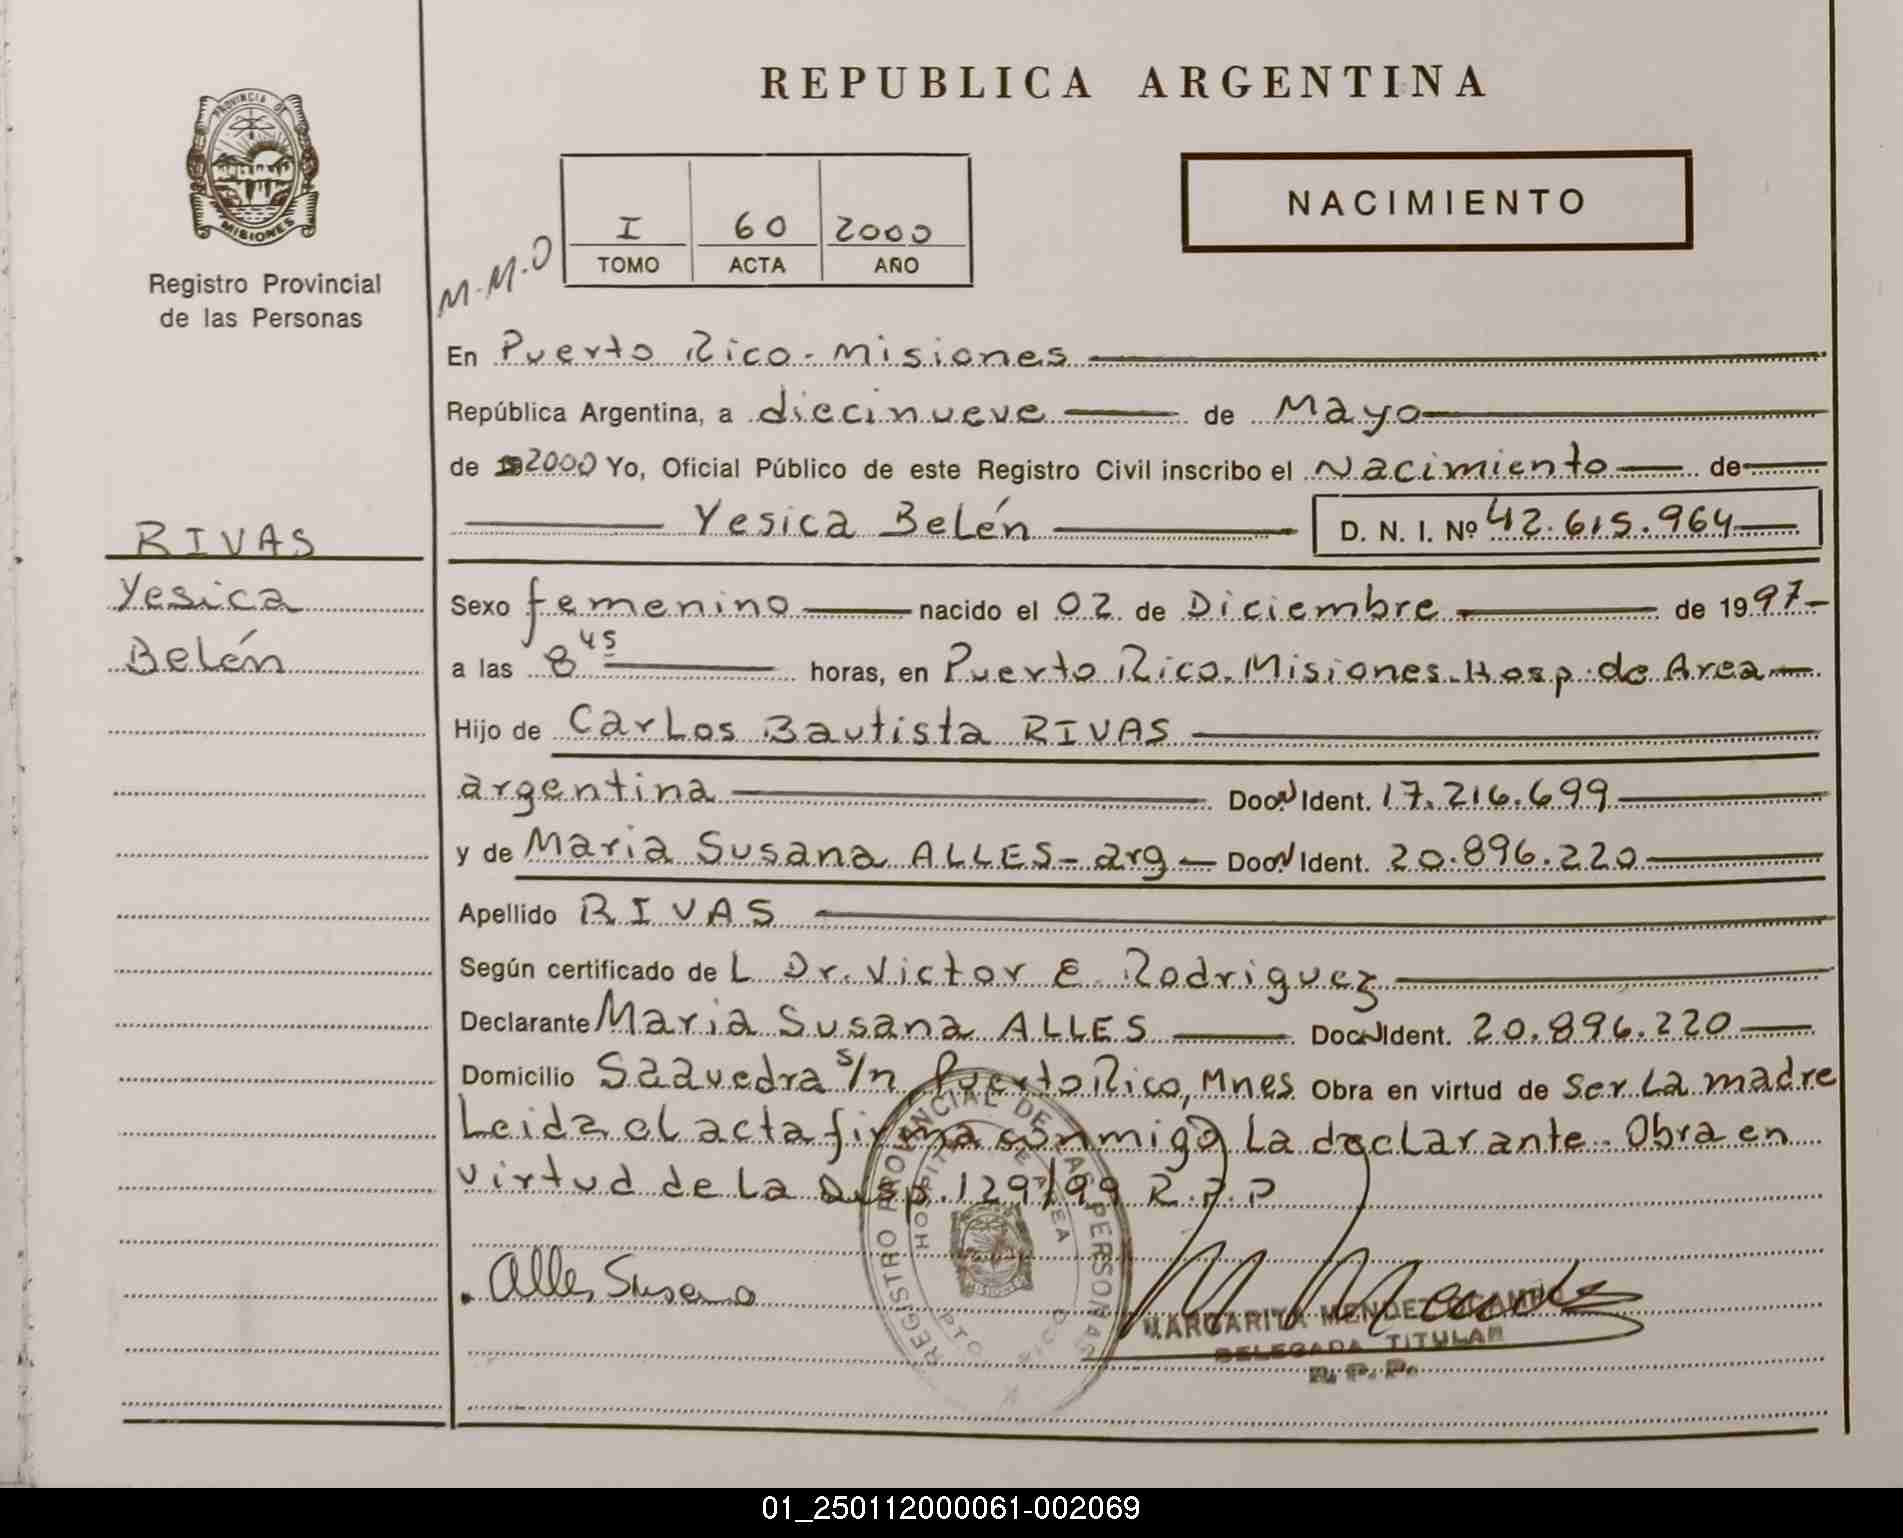 REPUBLICA ARGENTINA
PROVINCIA DE
MISIONES
Registro Provincial
de las Personas
NACIMIENTO
I 60 2000
TOMO ACTA AÑO
M.M.O
En Puerto Rico - Misiones
República Argentina, a diecinueve de Mayo
de 2000 Yo, Oficial Público de este Registro Civil inscribo el Nacimiento de
Yesica Belén D. N. I. Nº 42.615.964
RIVAS
Yesica
Belén
Sexo femenino nacido el 02 de Diciembre de 1997-
a las 8 45 horas, en Puerto Rico. Misiones. Hosp. de Area
Hijo de Carlos Bautista RIVAS
argentina Doc. N Ident. 17.216.699
y de Maria Susana ALLES - arg Doc. N Ident. 20.896.220
Apellido RIVAS
Según certificado de L Dr. Victor E. Rodriguez
Declarante Maria Susana ALLES Doc. N Ident. 20.896.220
Domicilio Saavedra s/n Puerto Rico, Mnes Obra en virtud de ser La madre
Leida el acta firma conmigo La declarante. Obra en
virtud de La Disp. 129/99 R.P.P
REGISTRO PROVINCIAL DE LAS PERSONAS
HOSPITAL DE AREA
PTO. RICO
Alles Susana
MARGARITA MENDEZ OCAMPO
DELEGADA TITULAR
R. P. P.
01_250112000061-002069